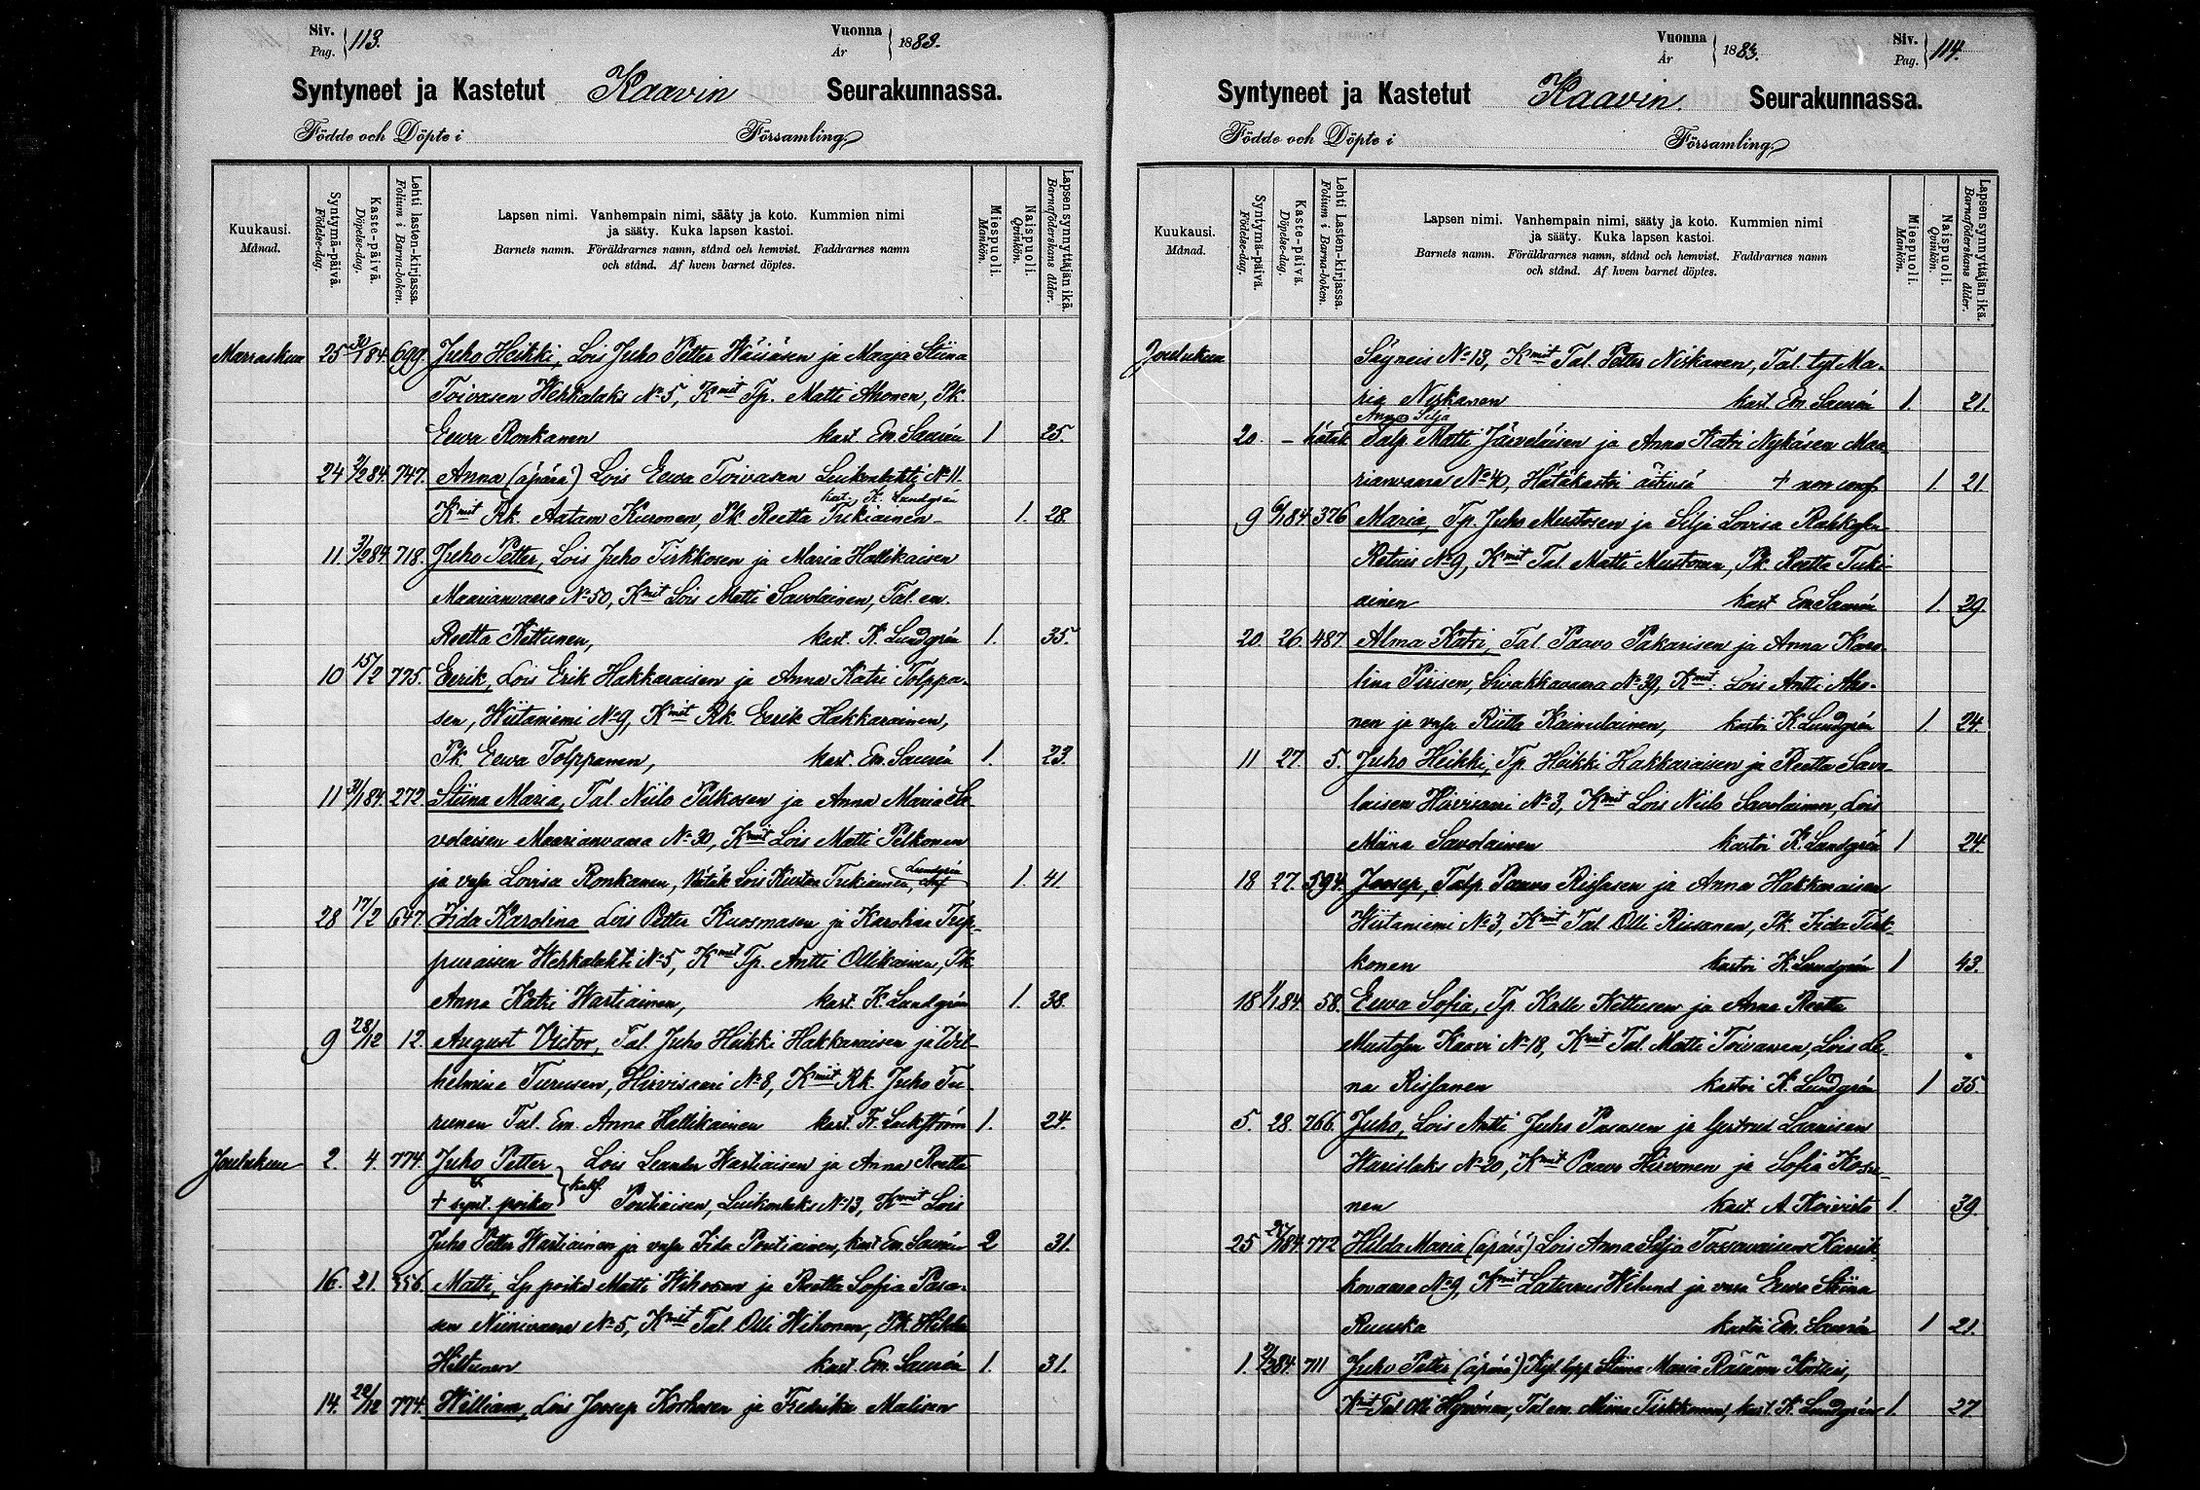 Siv. Pag. 113. Vuonna År 1883.
Syntyneet ja Kastetut Kaavin Seurakunnassa.
Födde och Döpte i Församling
Kuukausi. Månad.
Syntymä-päivä. Födelse-dag.
Kaste-päivä. Döpelse-dag.
Lehti lasten-kirjassa. Folium i Barna-boken.
Lapsen nimi. Vanhempain nimi, sääty ja koto. Kummien nimi
ja sääty. Kuka lapsen kastoi.
Barnets namn. Föräldrarnes namn, stånd och hemvist. Faddrarnes namn
och stånd. Af hvem barnet döptes.
Miespuoli. Mankön.
Naispuoli. Qvinkön.
Lapsen synnyttäjän ikä. Barnaföderskans ålder.
Marraskuu 25 30/1 84. 699. Juho Heikki, Lois Juho Petter Wäisäsen ja Maaja Stiina
Toivasen Wehkalaks No 5, Kmit Tp. Matti Ahonen, Pk.
Eewa Ronkanen kast. Em. Saurén 1 25.
24 2/2 84. 747. Anna (äpärä) Lois Eewa Toivasen Luikonlahti No 11.
kast. K. Lundgrén
Kmit Rk. Aatam Kuronen, Pk Reetta Tukiainen 1. 28.
11. 3/2 84 718. Juho Petter, Lois Juho Tirkkosen ja Maria Hallikaisen
Maarianvaara No 50, Kmit Lois Matti Savolainen, Tal. em.
Reetta Kettunen, kast. K. Lundgrén 1. 35.
10 15/2 775. Eerik, Lois Erik Hakkaraisen ja Anna Katri Tolppa-
sen, Wiitaniemi No 9, Kmit Rk. Eerik Hakkarainen,
Pk. Eewa Tolppanen, kast. Em. Saurén 1. 23.
11 30/1 84. 272. Stiina Maria, Tal. Niilo Pelkosen ja Anna Maria Sa-
volaisen Maarianvaara No 30, Kmit Lois Matti Pelkonen
ja vaja Lovisa Ronkanen, hätäk Lois Kustaa Tukiainen, Lundgrén 1. 41.
28 17/2 647. Iida Karolina Lois Petter Kuosmasen ja Karolina Trip-
puraisen Wehkalahti No 5, Kmit Tp. Antti Ollikainen, Pk
Anna Katri Wartiainen, kast. K. Lundgrén 1. 38.
9 28/12 12. August Victor, Tal. Juho Heikki Hakkaraisen ja Wil-
helmina Turusen, Hirvisaari No 8, Kmit Rk. Juho Tu-
runen Tal. Em. Anna Hallikainen kast. F. Lackström 1. 24.
Joulukuu 2. 4. 774. Juho Petter Lois Leander Wartiaisen ja Anna Reetta
+ synt. poika Pontiaisen, Luikonlaks No 13, Kmit Lois
Juho Petter Wartiainen ja vaja Iida Pontiainen, kast Em. Saurén 2 31.
16. 21. 556. Matti, Lp poika Matti Wihosen ja Reetta Sofia Pasa-
sen Niinivaara No 5, Kmit Tal. Olli Wihonen, Pk Hilda
Hiltunen kast. Em. Saurén 1. 31.
14. 22/12 774. William, Lois Joosep Korhosen ja Fredrika Malisen
Vuonna År 1883. Siv. Pag. 114.
Syntyneet ja Kastetut Kaavin Seurakunnassa.
Födde och Döpte i Församling
Kuukausi. Månad.
Syntymä-päivä. Födelse-dag.
Kaste-päivä. Döpelse-dag.
Lehti lasten-kirjassa. Folium i Barna-boken.
Lapsen nimi. Vanhempain nimi, sääty ja koto. Kummien nimi
ja sääty. Kuka lapsen kastoi.
Barnets namn. Föräldrarnes namn, stånd och hemvist. Faddrarnes namn
och stånd. Af hvem barnet döptes.
Miespuoli. Mankön.
Naispuoli. Qvinkön.
Lapsen synnyttäjän ikä. Barnaföderskans ålder.
Joulukuu Säyneis No 13, Kmit Tal. Petter Niskanen, Tal. tyt Ma-
ria Niskanen kast. Em. Saurén 1. 21.
Anna Silja
20. – hätäk Talp. Matti Järveläisen ja Anna Katri Nykäsen Maa-
rianvaara No 40, Hätäkastoi äitinsä + 1. 21.
9 6/1 84 376 Maria, Tp. Juho Mustosen ja Silja Lovisa
No 9, Kmit Tal. Matti Mustonen, Pk. Reetta Tuki-
ainen kast Em. Saurén 1. 29.
20. 26. 487. Alma Katri, Tal. Paavo Pakarisen ja Anna Karo-
lina Pirisen, Sivakkavaara No 39, Kmit Lois Antti Aho-
nen ja vaja Riitta Kainulainen, kastoi K. Lundgrén 1. 24.
11 27. 5. Juho Heikki, Tp. Heikki Hakkaraisen ja Reetta Savo-
laisen Hirvisaari No 3, Kmit Lois Niilo Savolainen, Lois
Miina Savolainen kastoi K. Lundgrén 1 24.
18 27. 594. Joosep, Talp. Paavo Rissasen ja Anna Hakkaraisen
Wiitaniemi No 3, Kmit Tal. Olli Rissanen, Pk. Iida Tirk-
konen kastoi K. Lundgrén 1 43.
18 1/1 84. 58. Eewa Sofia, Tp. Kalle Kettusen ja Anna Reetta
Mustosen Kaavi No 18, Kmit Tal. Matti Toivanen, Lois Le-
na Rissanen kastoi K. Lundgrén 1 35.
5. 28. 766. Juho, Lois Antti Juho Pasasen ja Gertrud Laurisen
Warislaks No 20, Kmit Paavo Hirvonen ja Sofia
nen kast. A. Koivisto 1. 39.
25 772 Hilda Maria (äpärä) Lois Anna Silja Tossavaisen Kärsik-
kovaara No 9, Kmit Wilund ja vaja Eewa Stiina
Ruuska kastoi Em. Saurén 1 21.
1. 711 Juho Petter (äpärä) Stiina Maria Räsäsen
Kmit Tal. Olli Hyvönen, Tal em. Miina Tirkkonen, kast. K. Lundgrén 1. 27